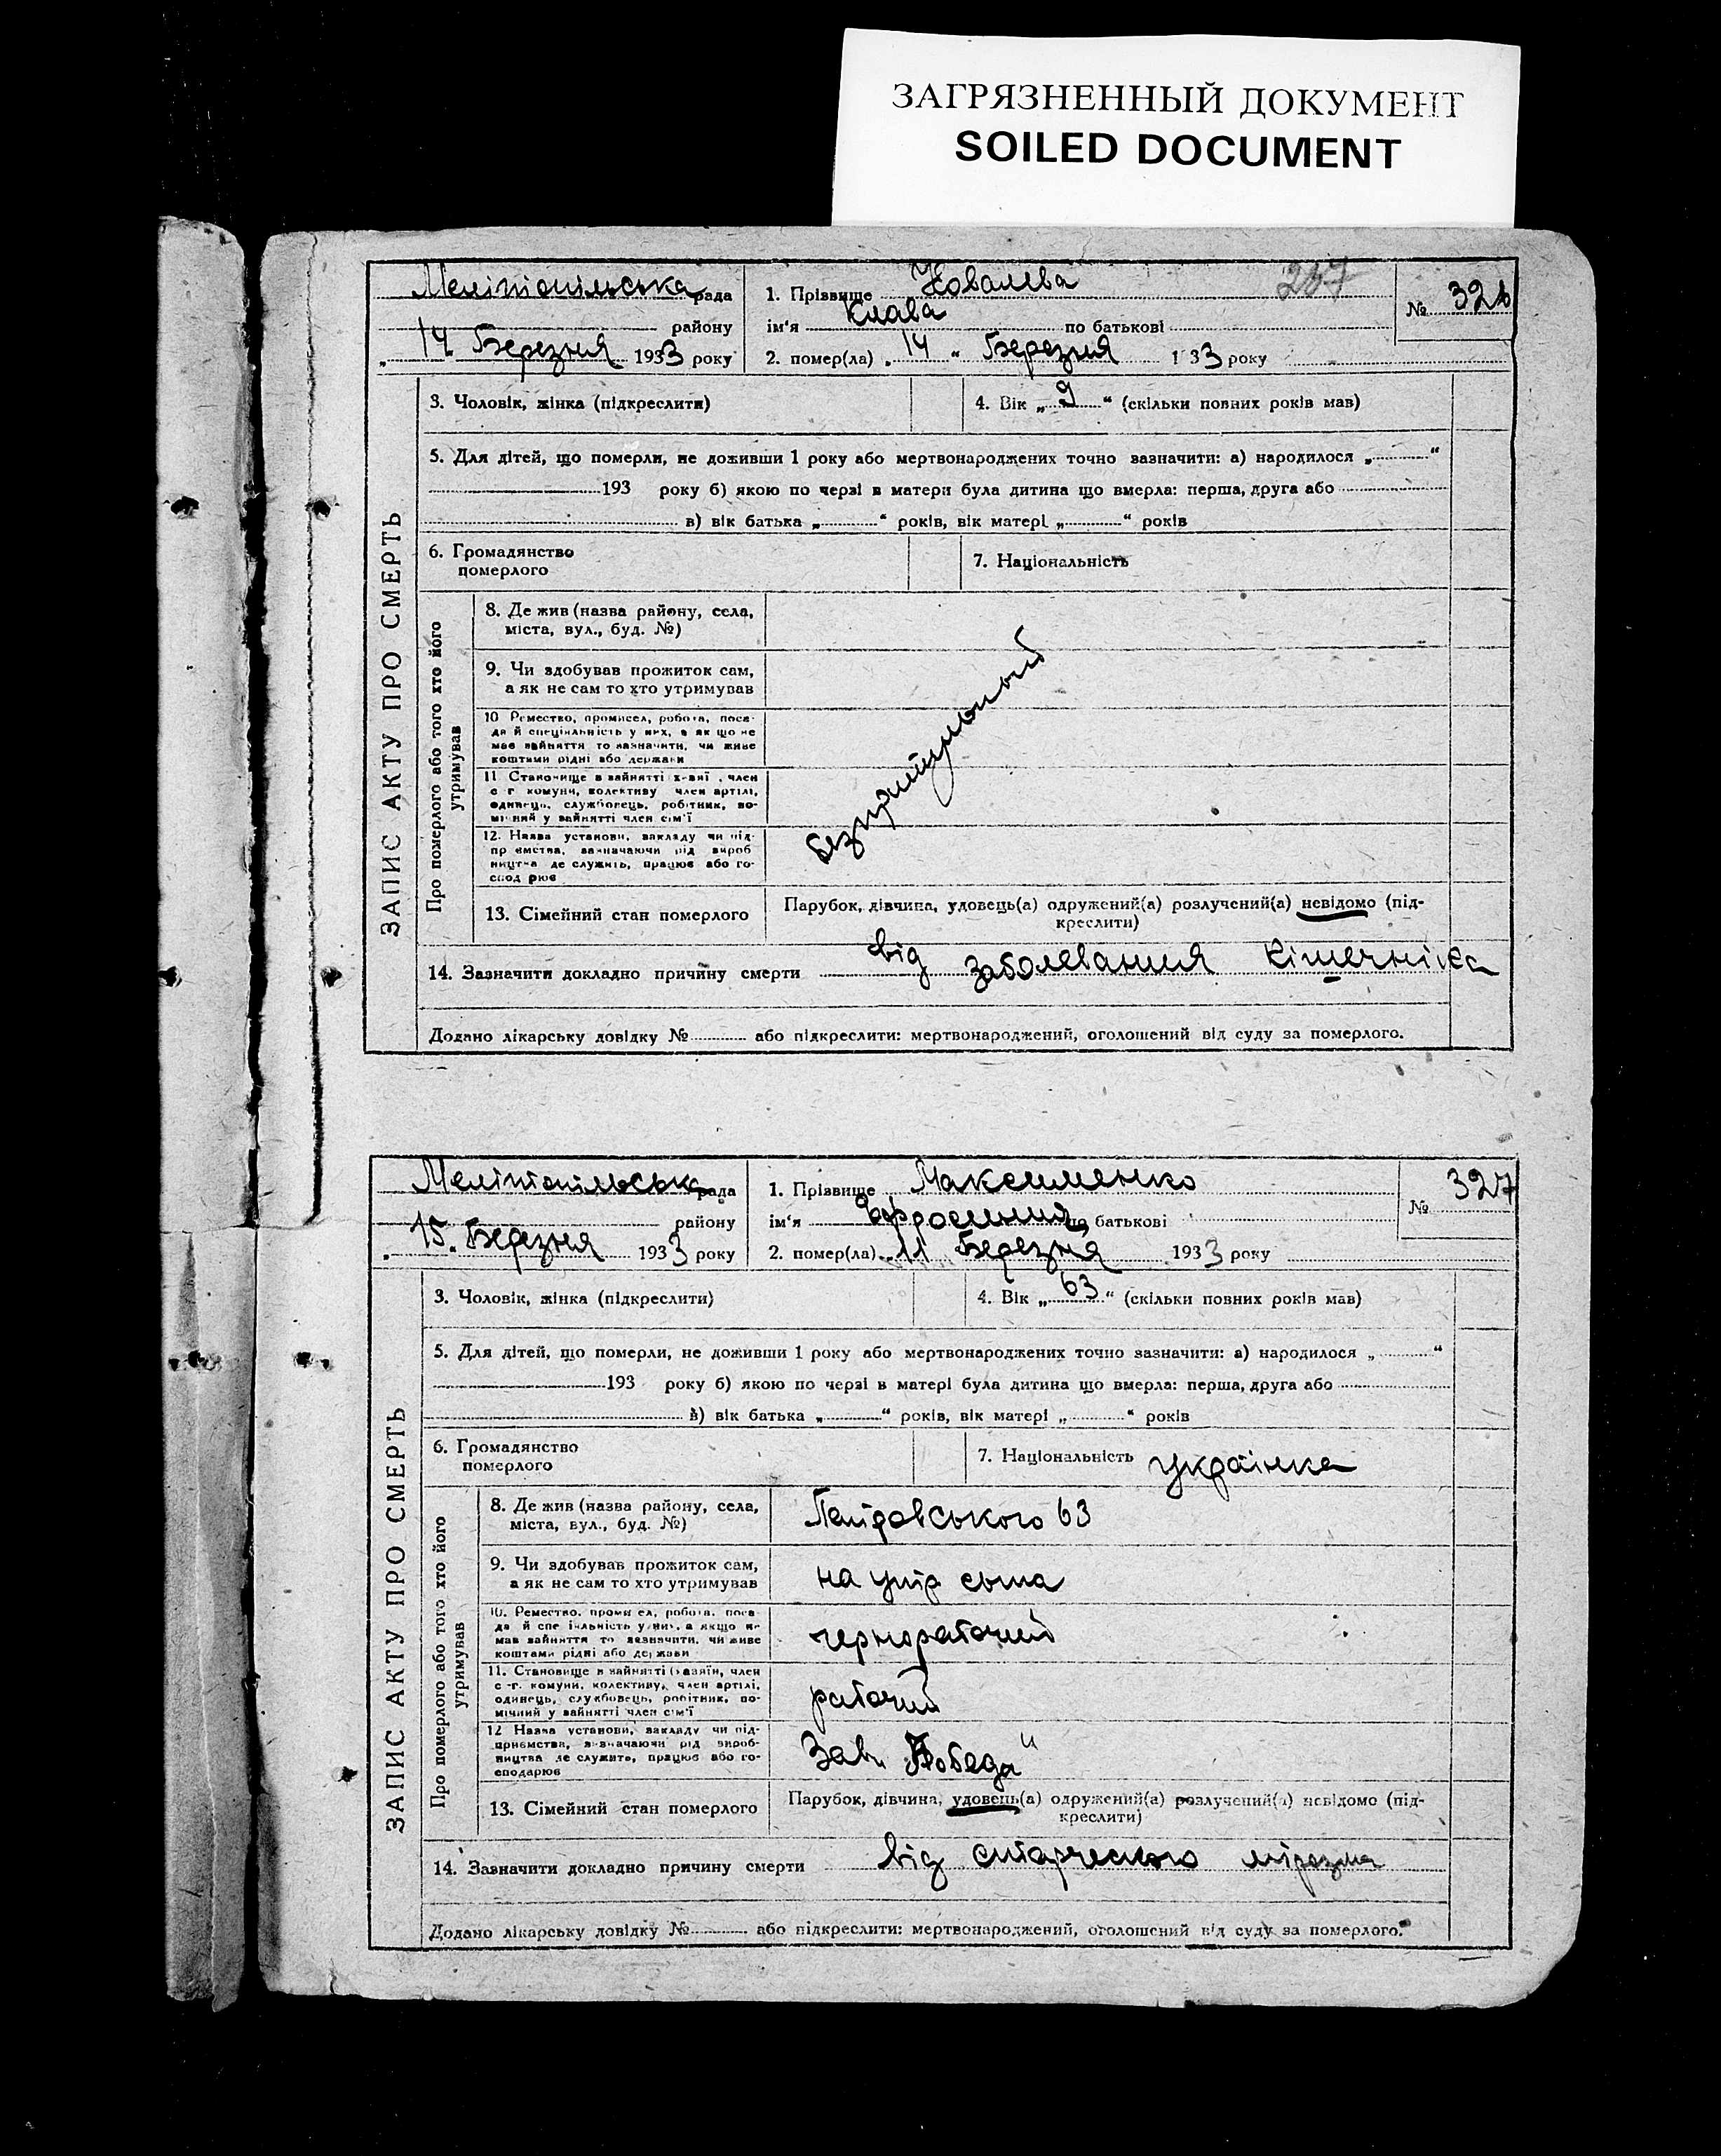 ЗАГРЯЗНЕННЫЙ ДОКУМЕНТ
SOILED DOCUMENT
257
Мелітопільська рада
району
„ 14 Березня 1933 року
1. Прізвище Ковалева
ім'я Клава по батькові
2. помер(ла) „ 14 “ Березня 1 33 року
№ 326
ЗАПИС АКТУ ПРО СМЕРТЬ
3. Чоловік, жінка (підкреслити)
4. Вік „ 9 “ (скільки повних років мав)
5. Для дітей, що померли, не доживши 1 року або мертвонароджених точно зазначити: а) народилося „ “
193 року б) якою по черзі в матери була дитина що вмерла: перша, друга або
в) вік батька „ “ років, вік матері „ “ років
6. Громадянство
померлого
7. Національність
Про померлого або того хто його
утримував
8. Де жив (назва району, села,
міста, вул., буд. №)
9. Чи здобував прожиток сам,
а як не сам то хто утримував
10 Ремество, промисел, робота, поса-
да й спеціяльність у них, а як що не
має зайняття то зазначити, чи живе
коштами рідні або держави
11 Становище в зайнятті х-аяї , член
с г комуни, колективу член артілі,
одинець, службовець, робітник, по-
мічний у зайнятті член сім'ї
12. Назва установи, закладу чи під-
пр ємства, зазначаючи рід вироб
ництва де служить, працює або го-
спод рює
безпритульный
13. Сімейний стан померлого
Парубок, дівчина, удовець(а) одружений(а) розлучений(а) невідомо (під-
креслити)
14. Зазначити докладно причину смерти від заболевания кішечніка
Додано лікарську довідку № або підкреслити: мертвонароджений, оголошений від суду за померлого.
Мелітопільська рада
району
„ 15. Березня 1933 року
1. Прізвище Максименко
ім'я Ефросиния по батькові
2. помер(ла) 11 Березня 1933 року
№ 327
ЗАПИС АКТУ ПРО СМЕРТЬ
3. Чоловік, жінка (підкреслити)
4. Вік „ 63 “ (скільки повних років мав)
5. Для дітей, що померли, не доживши 1 року або мертвонароджених точно зазначити: а) народилося „ “
193 року б) якою по черзі в матері була дитина що вмерла: перша, друга або
в) вік батька „ “ років, вік матері „ “ років
6. Громадянство
померлого
7. Національність українка
Про померлого або того хто його
утримував
8. Де жив (назва району, села,
міста, вул., буд. №)
63
9. Чи здобував прожиток сам,
а як не сам то хто утримував
на утр сына
10. Ремество, промисел, робота, поса-
да й спеціяльність у них, а якщо не
мав зайняття то зазначити, чи живе
коштами рідні або держави
чернорабочий
11. Становище в зайнятті (хазяїн, член
с-г. комуни, колективу, член артілі,
одинець, службовець, робітник, по-
мічний у зайнятті член сім'ї
рабочий
12 Назва установи, закладу чи під-
приємства, зазначаючи рід вироб-
ництва де служить, працює або го-
сподарює
Зав. Победа"
13. Сімейний стан померлого
Парубок, дівчина, удовець(а) одружений(а) розлучений(а) невідомо (під-
креслити)
14. Зазначити докладно причину смерти від старческого міразма
Додано лікарську довідку № або підкреслити: мертвонароджений, оголошений від суду за померлого.